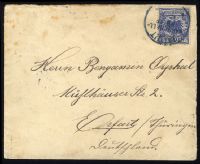 Herrn Benjamin
Mühlhäuser Str. 2.
Erfurt / Thüringen
Deutschland.